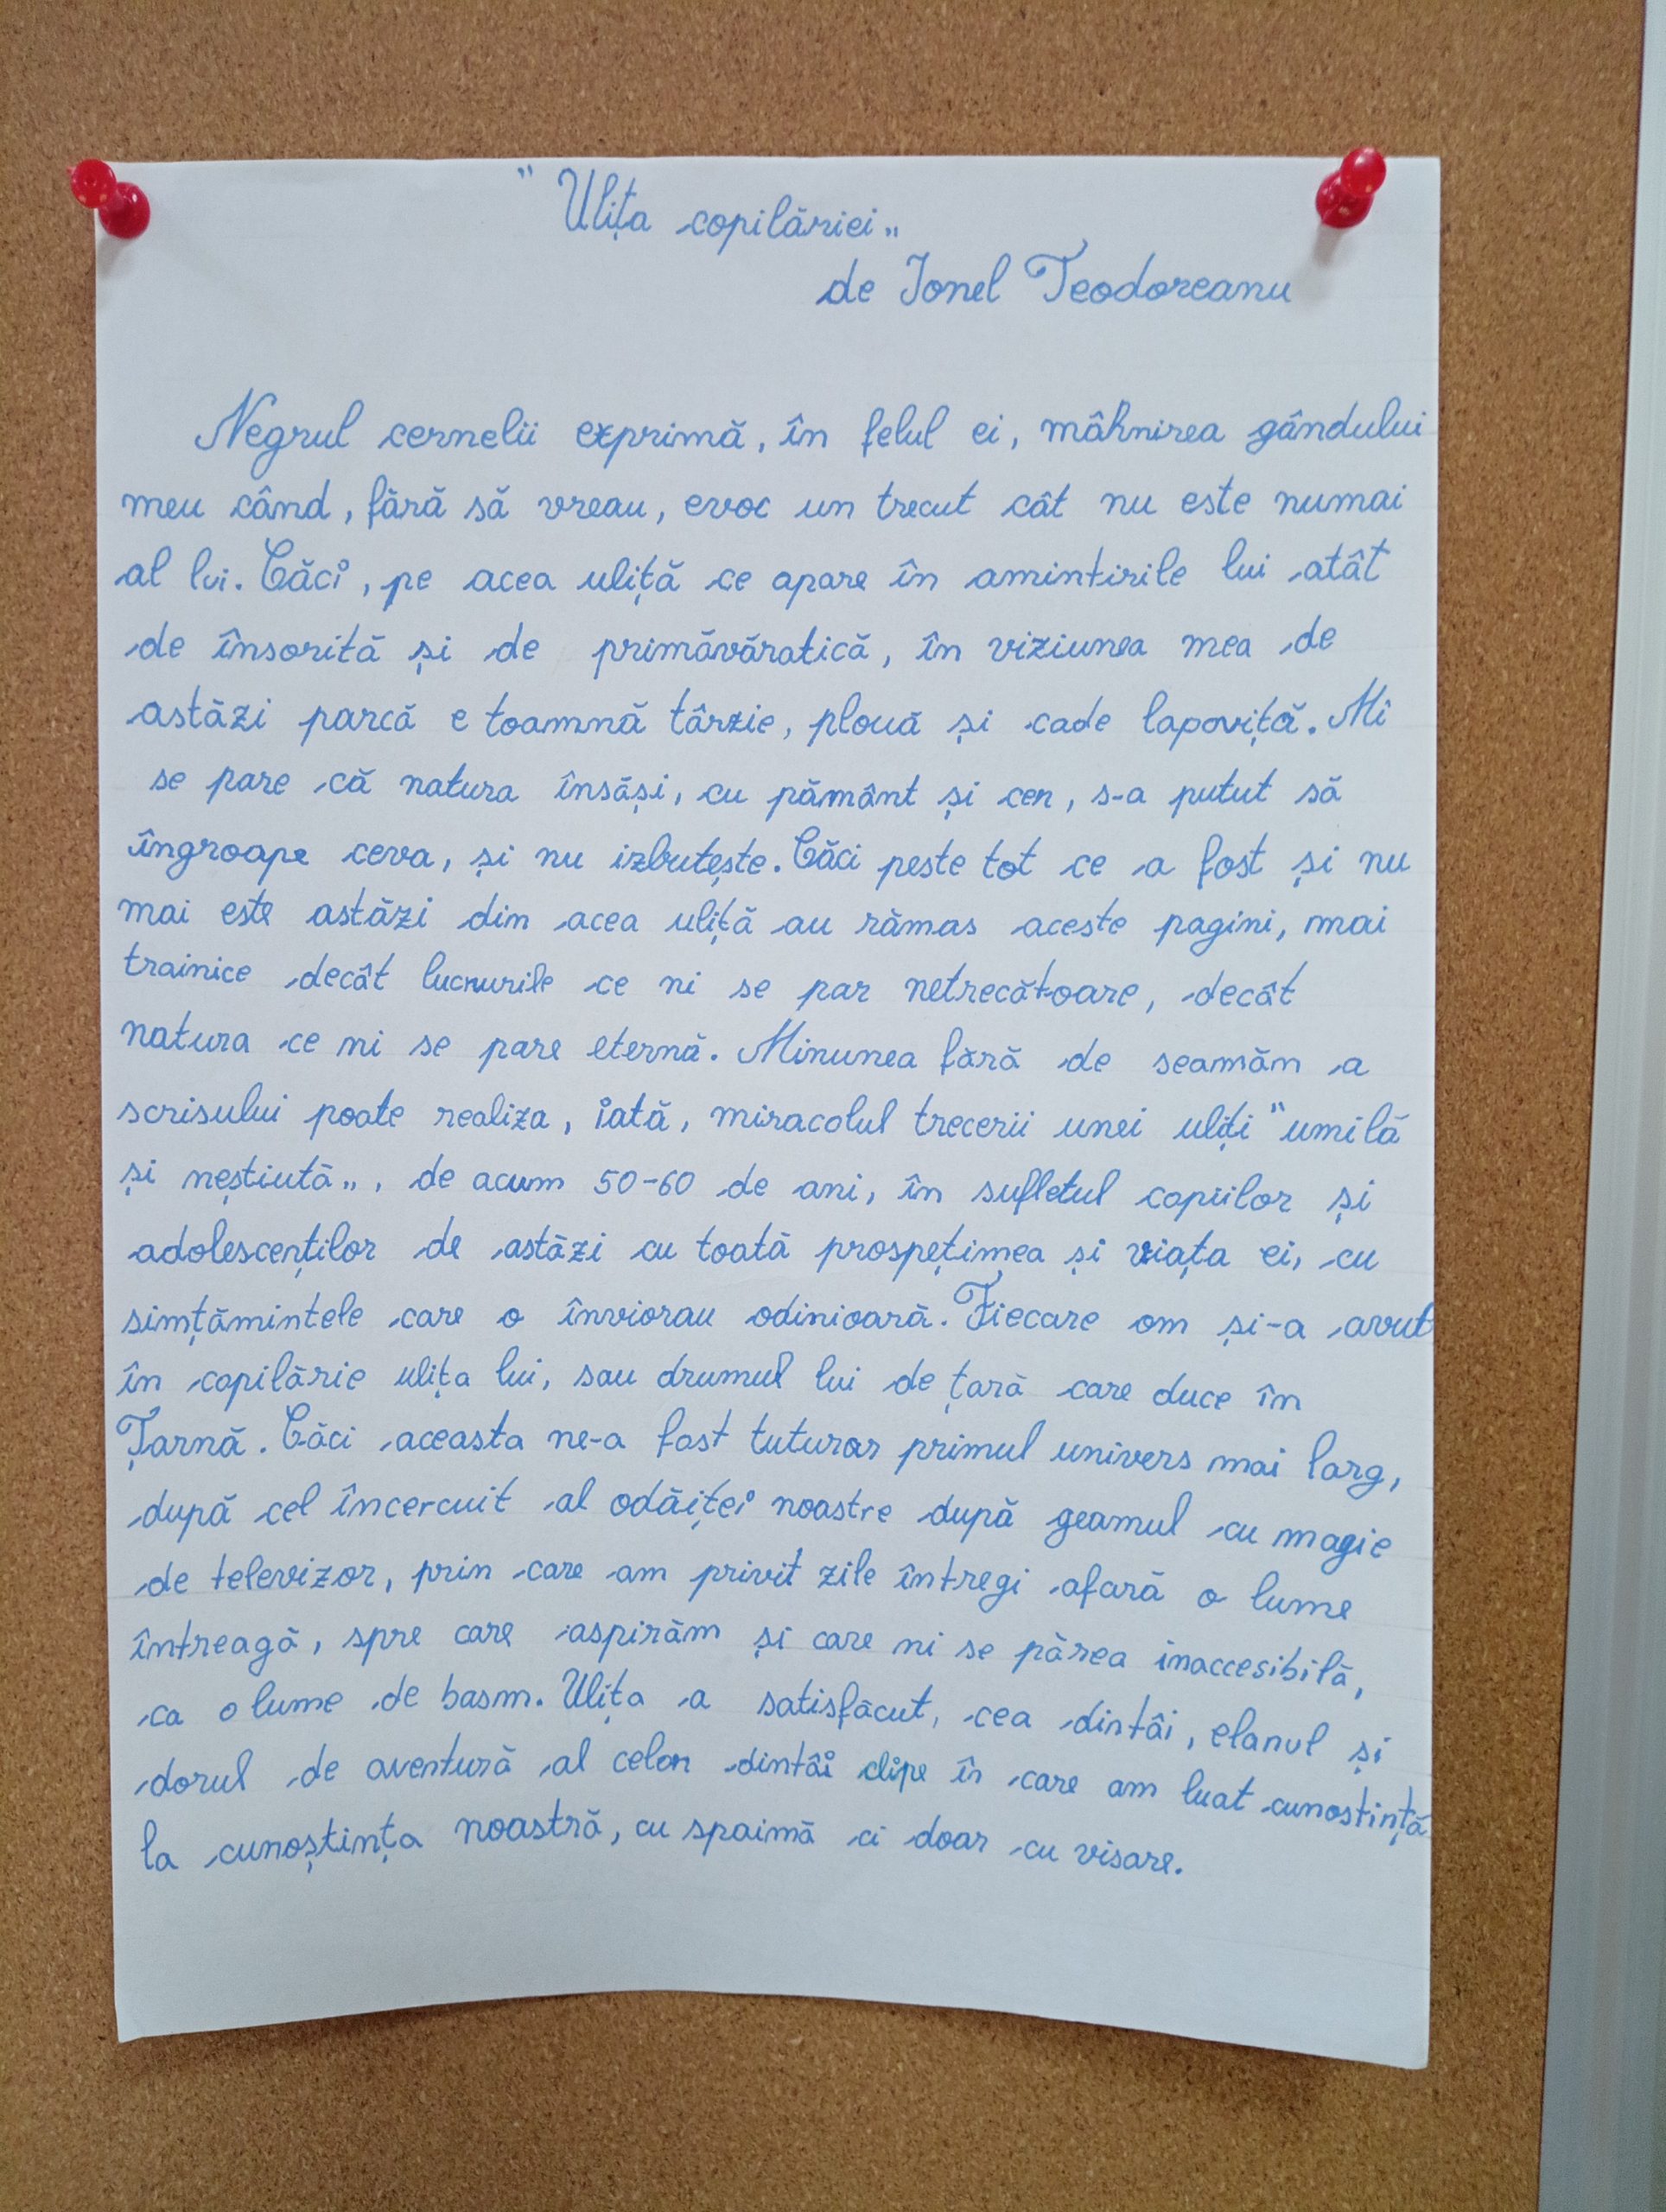 " Ulița copilăriei „
de Ionel Teodoreanu
Negrul cernelii exprimă, în felul ei, mâhnirea gândului
meu când, fără să vreau, evoc un trecut cât nu este numai
al lui. Căci, pe acea uliță ce apare în amintirile lui atât
de însorită și de primăvăratică, în viziunea mea de
astăzi parcă e toamnă târzie, plouă și cade lapoviță. Mi
se pare că natura însăși, cu pământ și cer, s-a putut să
îngroape ceva, și nu izbutește. Căci peste tot ce a fost și nu
mai este astăzi din acea uliță au rămas aceste pagini, mai
trainice decât lucrurile ce ni se par netrecătoare, decât
natura ce ni se pare eternă. Minunea fără de seamăm a
scrisului poate realiza, iată, miracolul trecerii unei uliți "umilă
și neștiută„, de acum 50-60 de ani, în sufletul copiilor și
adolescenților de astăzi cu toată prospețimea și viața ei, cu
simțămintele care o înviorau odinioară. Fiecare om și-a avut
în copilărie ulița lui, sau drumul lui de țară care duce în
Țarnă. Căci aceasta ne-a fost tuturor primul univers mai larg,
după cel încercuit al odăiței noastre după geamul cu magie
de televizor, prin care am privit zile întregi afară o lume
întreagă, spre care aspirăm și care ni se părea inaccesibilă,
ca o lume de basm. Ulița a satisfăcut, cea dintâi, elanul și
dorul de aventură al celor dintâi clipe în care am luat cunostință
la cunoștința noastră, cu spaimă ci doar cu visare.